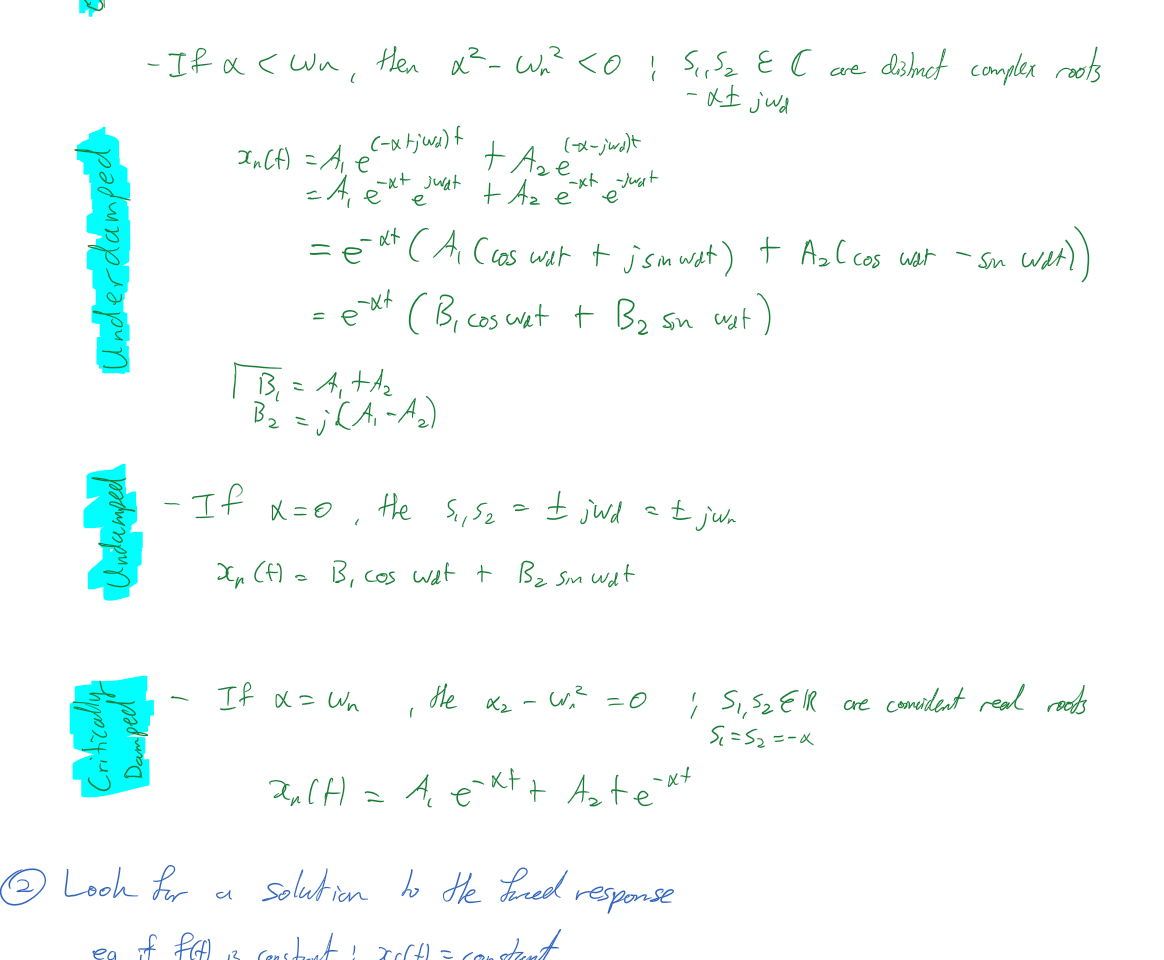 - If α < ωn, then α² - ωn² < 0 ; S₁,S₂ ∈ ℂ are distinct complex roots
- α ± jωd
Underdamped
xn(t) = A₁ e^(-α+jωd)t + A₂ e^(-α-jωd)t
= A₁ e^-αt e^jωdt + A₂ e^-αt e^-jωdt
= e^-αt ( A₁ (cos ωdt + j sin ωdt) + A₂ (cos ωdt - sin ωdt))
= e^-αt ( B₁ cos ωdt + B₂ sin ωdt )
B₁ = A₁ + A₂
B₂ = j(A₁ - A₂)
Undamped
- If α = 0, the s₁,s₂ = ± jωd = ± jωn
xn(t) = B₁ cos ωdt + B₂ sin ωdt
Critically
Damped
- If α = ωn, the α₂ - ωn² = 0 ; S₁,S₂ ∈ ℝ are coincident real roots
S₁ = S₂ = -α
xn(t) = A₁ e^-αt + A₂ t e^-αt
② Look for a solution to the forced response
eg if f(t) is constant ; xf(t) = constant